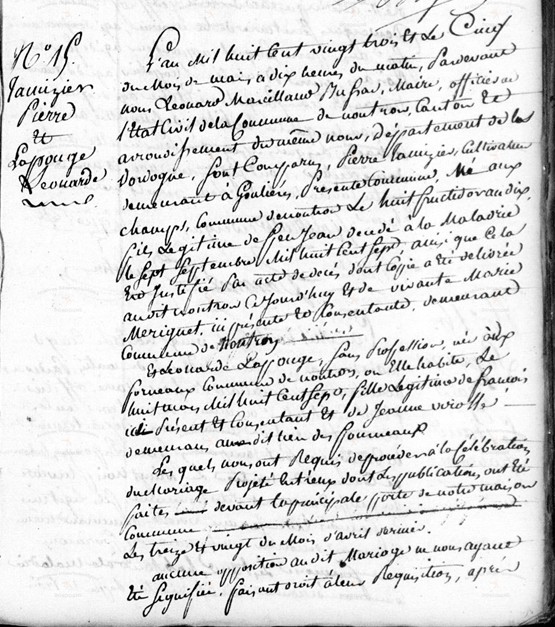 N° 15.
Jamizier
Pierre
et
Lapouge
Léonarde
L'an Mil huit Cent vingt trois et Le Cinq
du Mois de mai à dix heures du matin, Pardevant
nous Léonard Marcilland Bussac, Maire, officier de
l'Etat Civil de la Commune de nontron, Canton et
arrondissement du même nom, département de la
Dordogne, sont Comparus, Pierre Jamizier, Cultivateur
demeurant à Gouliens, Présente Commune, Né aux
champs, Commune de nontron Le huit fructidor an dix,
fils Légitime de feu Jean décédé à la Maladrie
le Sept Septembre Mil huit Cent Sept, ainsi que Cela
est Justifié Par acte de décès, dont Copie a été délivrée
audit nontron Cejourd'huy et de vivante Marie
Meriguet, ici présente et Consentante, demeurant
Commune de Nontron
Et Léonarde Lapouge, sans Profession, née aux
forneaux Commune de nontron, où Elle habite, Le
huit mars Mil huit Cent Sept, fille Légitime de françois
ici Présent et Consentant et de Jeanne
demeurans audit lieu des fourneaux
Les quels nous ont Requis de procéder à la Célébration
du Mariage Projeté Entr'eux dont Les publications ont Été
faites, devant la principale porte de notre maison
Commune
Les treize et vingt du Mois d'avril dernier.
aucune opposition au dit Mariage ne nous ayant
Été Signifiée, faisant droit à leur Réquisition, après